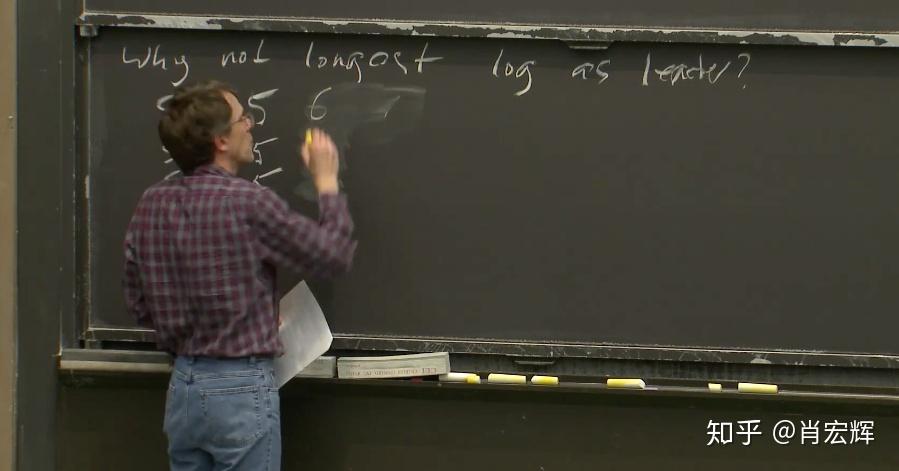 Why not longest log as leader?
5 6
5
5
知乎 @肖宏辉